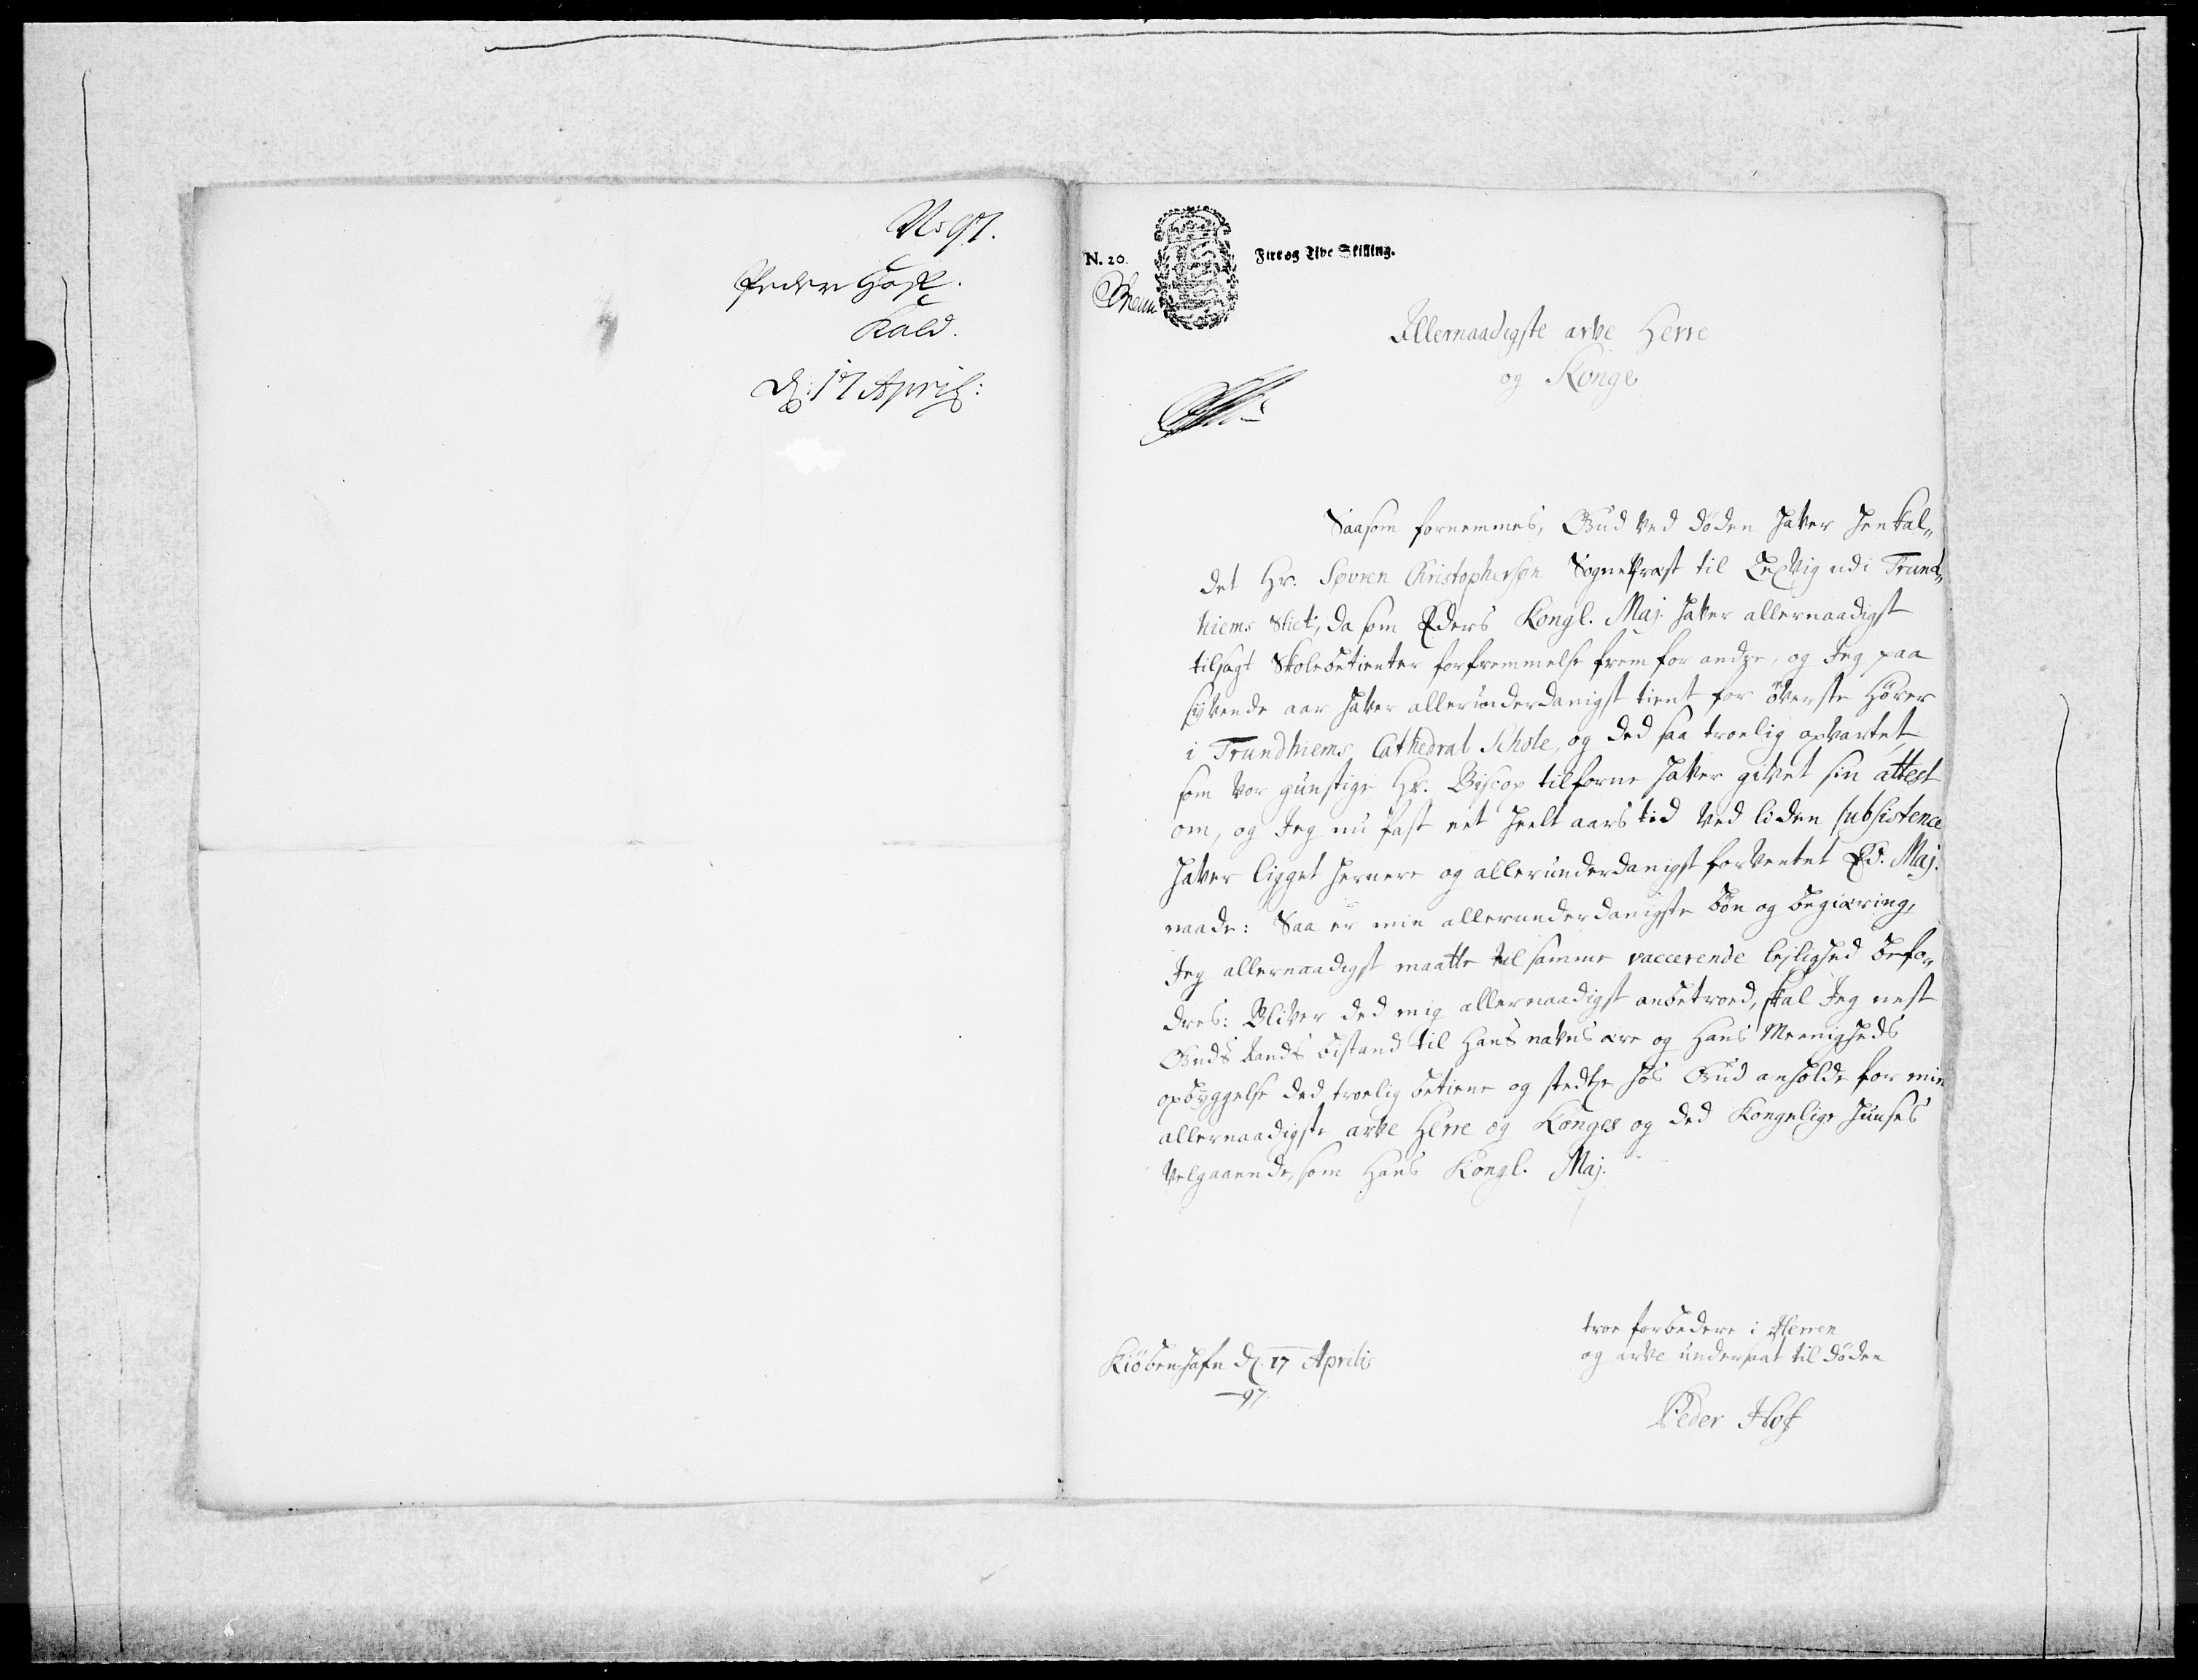 No 97.
Peder Hof
Kald.
d: 17 April:
N. 20.
Fire og Tive Skilling.
Allernaadigste arve Herre
og Konge
Saasom fornemmes, Gud ved döden haver henkal„
det Hr. Søvren Christophersøn Sognepræst til Lexvig udi Trund„
hiems Stict, da som Eders Kongl. Maj. haver allernaadigst
tilsagt Skolebetienter forfremmelse frem for andre, og Jeg paa
syvende aar haver allerunderdanigst tient for överste Hörer
i Trundhiems Cathedral Schole, og ded saa troelig opvartet
som vor gunstige Hr. Biscop tilforne haver givet sin attest
om, og Jeg nu fast eet heelt aars tid ved liden subsistence
haver ligget hernere og allerunderdanigst forventet Ed. Maj.
naade: Saa er min allerunderdanigste bön og begiæring,
Jeg allernaadigst maatte til samme vaccerende lejlighed befo„
dres: Bliver ded mig allernaadigst anbetroed, skal Jeg nest
Guds Aands bistand til Hans navns ære og Hans Meenigheds
opbyggelse ded troelig betiene og stedtze hos Gud anholde for min
allernaadigste arve Herre og Konges og ded Kongelige huuses
velgaaende, som Hans Kongl. Maj.
troe forbedere i Herren
og arve undersaat til döden
Kiöbenhafn d. 17 Aprilis
97
Peder Hof